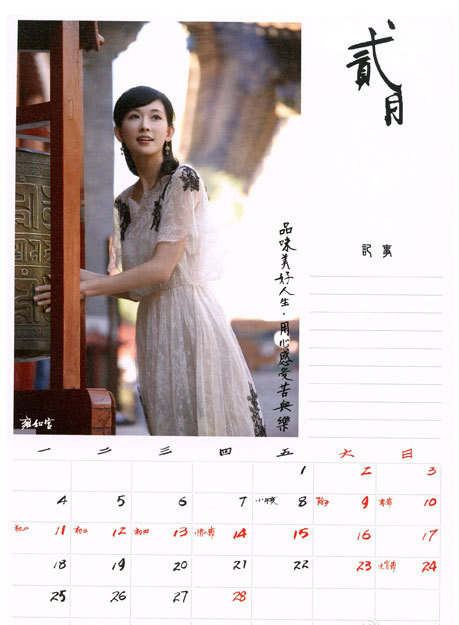 貳月
品味美好人生，用心感受苦與樂
記事
雍和宮
一 二 三 四 五 六 日
1 2 3
4 5 6 7 小年夜 8 除夕 9 春節 10
初二 11 初三 12 初四 13 情人節 14 15 16 17
18 19 20 21 22 23 元宵節 24
25 26 27 28